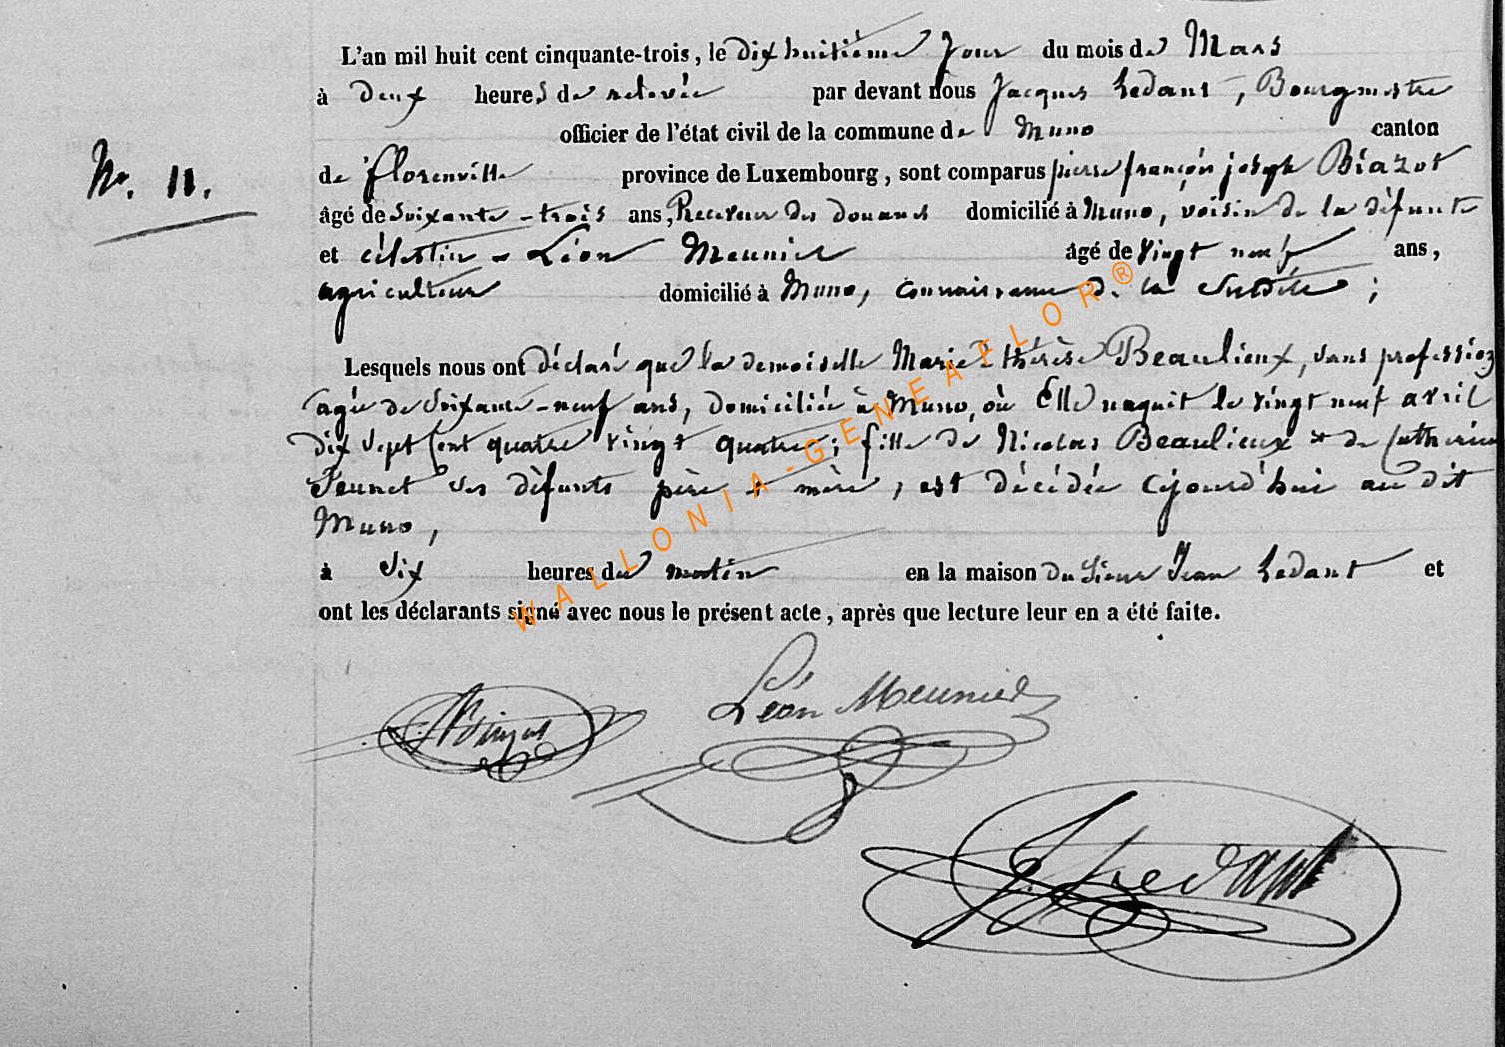 L'an mil huit cent cinquante-trois, le dix huitième jour du mois de Mars
à deux heures de relevée par devant nous Jacques Ledant, Bourgmestre
officier de l'état civil de la commune de Muno canton
No. 11.
de florenville province de Luxembourg, sont comparus pierre françois joseph Biazot
âgé de Soixante-trois ans, Receveur des douanes domicilié à Muno, voisin de la défunte
et célestin - Léon Meunier âgé de vingt neuf ans,
agriculteur domicilié à Muno, connaissance de la Susdite ;
Lesquels nous ont déclaré que la demoiselle Marie thérèse Beaulieux, sans profession
agée de Soixante-neuf ans, domiciliée à Muno, où Elle naquit le vingt neuf avril
dix Sept Cent quatre vingt quatre; fille de Nicolas Beaulieux & de Catherine
Jeunet ses défunts père & mère, est décédée cejourd'hui au dit
Muno,
à Six heures du matin en la maison du Sieur Jean Ledant et
ont les déclarants signé avec nous le présent acte, après que lecture leur en a été faite.
WALLONIA-GENEAFLOR®
Léon Meunier
J. Ledant